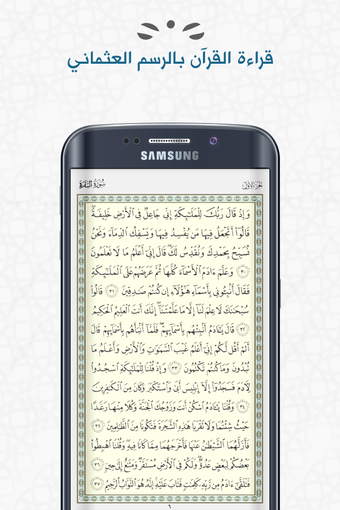 قراءة القرآن بالرسم العثماني
SAMSUNG
الجزء الأول
سُورَةُ البَقَرَةِ
وَإِذْ قَالَ رَبُّكَ لِلْمَلَٰٓئِكَةِ إِنِّى جَاعِلٌ فِى ٱلْأَرْضِ خَلِيفَةً
قَالُوٓا۟ أَتَجْعَلُ فِيهَا مَن يُفْسِدُ فِيهَا وَيَسْفِكُ ٱلدِّمَآءَ وَنَحْنُ
نُسَبِّحُ بِحَمْدِكَ وَنُقَدِّسُ لَكَ قَالَ إِنِّىٓ أَعْلَمُ مَا لَا تَعْلَمُونَ
٣٠ وَعَلَّمَ ءَادَمَ ٱلْأَسْمَآءَ كُلَّهَا ثُمَّ عَرَضَهُمْ عَلَى ٱلْمَلَٰٓئِكَةِ
فَقَالَ أَنۢبِـُٔونِى بِأَسْمَآءِ هَٰٓؤُلَآءِ إِن كُنتُمْ صَٰدِقِينَ ٣١ قَالُوا۟
سُبْحَٰنَكَ لَا عِلْمَ لَنَآ إِلَّا مَا عَلَّمْتَنَآ إِنَّكَ أَنتَ ٱلْعَلِيمُ ٱلْحَكِيمُ
٣٢ قَالَ يَٰٓـَٔادَمُ أَنۢبِئْهُم بِأَسْمَآئِهِمْ فَلَمَّآ أَنۢبَأَهُم بِأَسْمَآئِهِمْ قَالَ
أَلَمْ أَقُل لَّكُمْ إِنِّىٓ أَعْلَمُ غَيْبَ ٱلسَّمَٰوَٰتِ وَٱلْأَرْضِ وَأَعْلَمُ مَا
تُبْدُونَ وَمَا كُنتُمْ تَكْتُمُونَ ٣٣ وَإِذْ قُلْنَا لِلْمَلَٰٓئِكَةِ ٱسْجُدُوا۟
لِـَٔادَمَ فَسَجَدُوٓا۟ إِلَّآ إِبْلِيسَ أَبَىٰ وَٱسْتَكْبَرَ وَكَانَ مِنَ ٱلْكَٰفِرِينَ
٣٤ وَقُلْنَا يَٰٓـَٔادَمُ ٱسْكُنْ أَنتَ وَزَوْجُكَ ٱلْجَنَّةَ وَكُلَا مِنْهَا رَغَدًا
حَيْثُ شِئْتُمَا وَلَا تَقْرَبَا هَٰذِهِ ٱلشَّجَرَةَ فَتَكُونَا مِنَ ٱلظَّٰلِمِينَ ٣٥
فَأَزَلَّهُمَا ٱلشَّيْطَٰنُ عَنْهَا فَأَخْرَجَهُمَا مِمَّا كَانَا فِيهِ وَقُلْنَا ٱهْبِطُوا۟
بَعْضُكُمْ لِبَعْضٍ عَدُوٌّ وَلَكُمْ فِى ٱلْأَرْضِ مُسْتَقَرٌّ وَمَتَٰعٌ إِلَىٰ حِينٍ ٣٦
فَتَلَقَّىٰٓ ءَادَمُ مِن رَّبِّهِۦ كَلِمَٰتٍ فَتَابَ عَلَيْهِ إِنَّهُۥ هُوَ ٱلتَّوَّابُ ٱلرَّحِيمُ ٣٧
٦